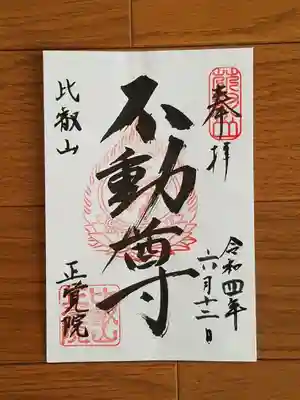 奉拝
令和四年
六月十二日
不動尊
比叡山
正覚院